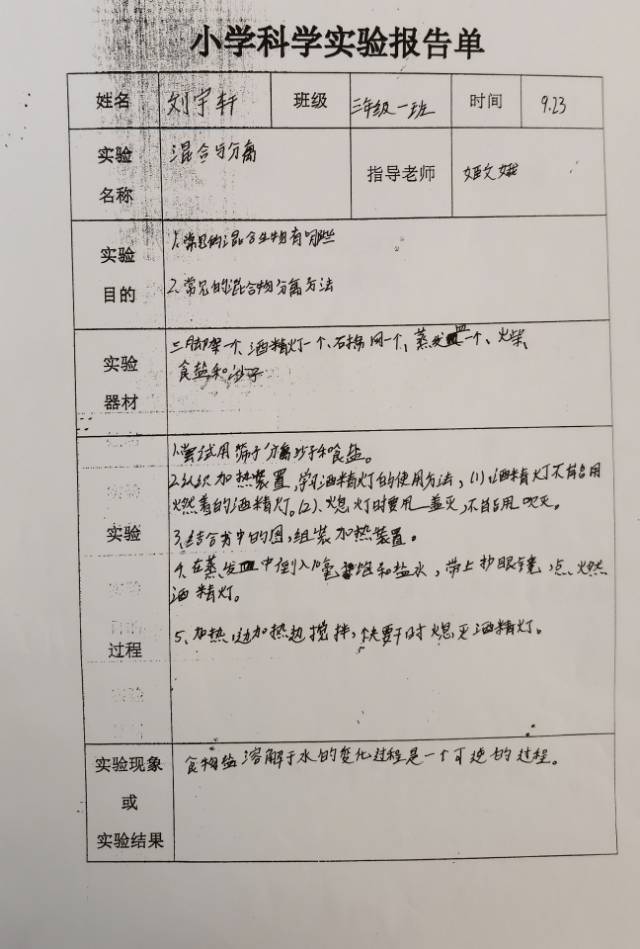 小学科学实验报告单
姓名 刘宇轩 班级 三年级一班 时间 9.23
实验名称 混合与分离 指导老师 姬文娥
实验目的
1.常见的混合物有哪些
2.常见的混合物分离方法
实验器材
三脚架一个、酒精灯一个、石棉网一个、蒸发皿一个、火柴、
食盐和沙子
实验过程
1.尝试用筛子分离沙子和食盐。
2.认识加热装置,学习酒精灯的使用方法,(1)酒精灯不能用
燃着的酒精灯。(2)、熄灯时要用盖灭,不能用吹灭。
3.结合书中的图,组装加热装置。
4.在蒸发皿中倒入 饱和盐水,带上护眼镜,点燃
酒精灯。
5、加热,边加热边搅拌,快要干时熄灭酒精灯。
实验现象
或
实验结果
食盐溶解于水的变化过程是一个可逆的过程。